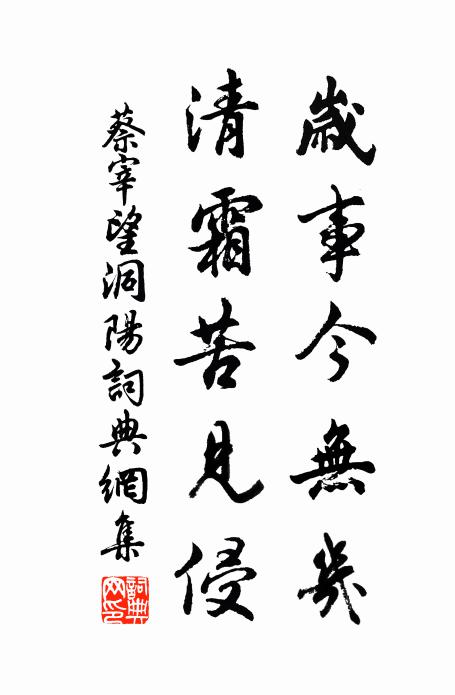 歲事今無幾
清霜苦見侵
蔡宰望洞陽詞典網集
詞典网印